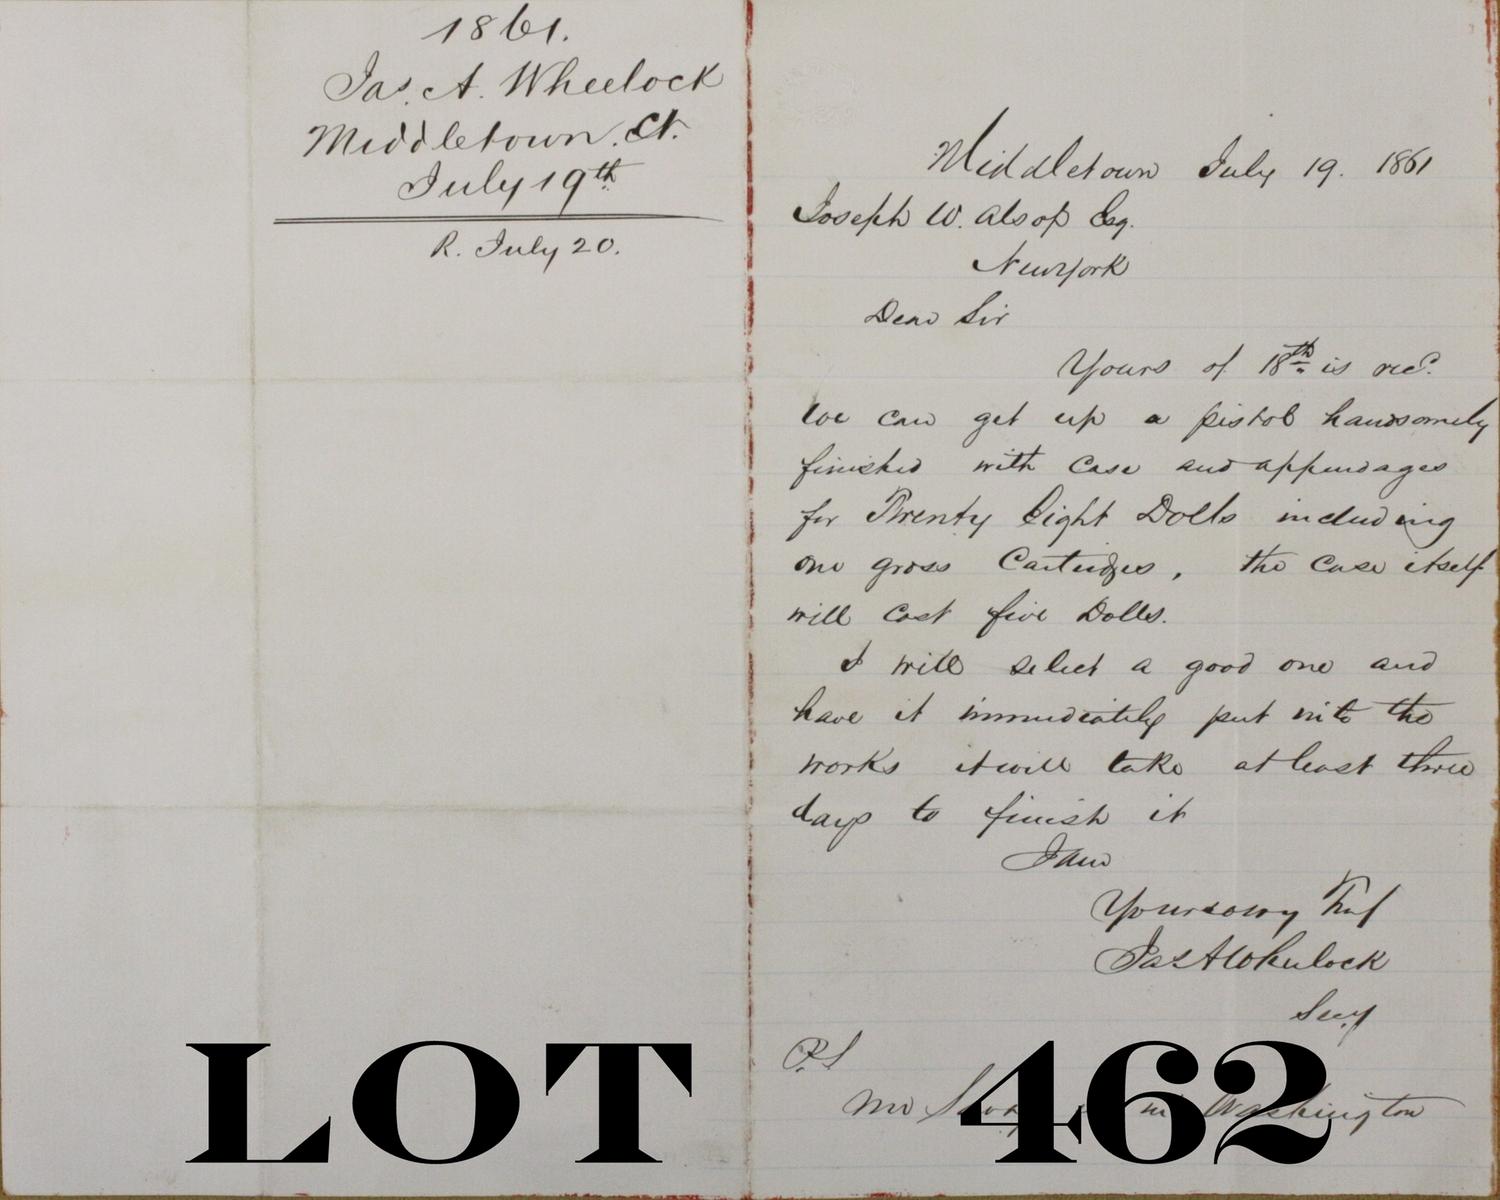 1861.
Jas. A. Wheelock
Middletown, Ct.
July 19th
R. July 20.
Middletown July 19. 1861
Joseph W. Alsop Esq.
New York
Dear Sir
Yours of 18th is recd.
We can get up a pistol handsomely
finished with case and appendages
for Twenty Eight Dolls including
one gross Cartridges, the case itself
will cost five Dolls.
I will select a good one and
have it immediately put into the
works it will take at least three
days to finish it
I am
Yours very Trul
Jas A Wheelock
Secy
P.S
Mr in Washington
LOT 462